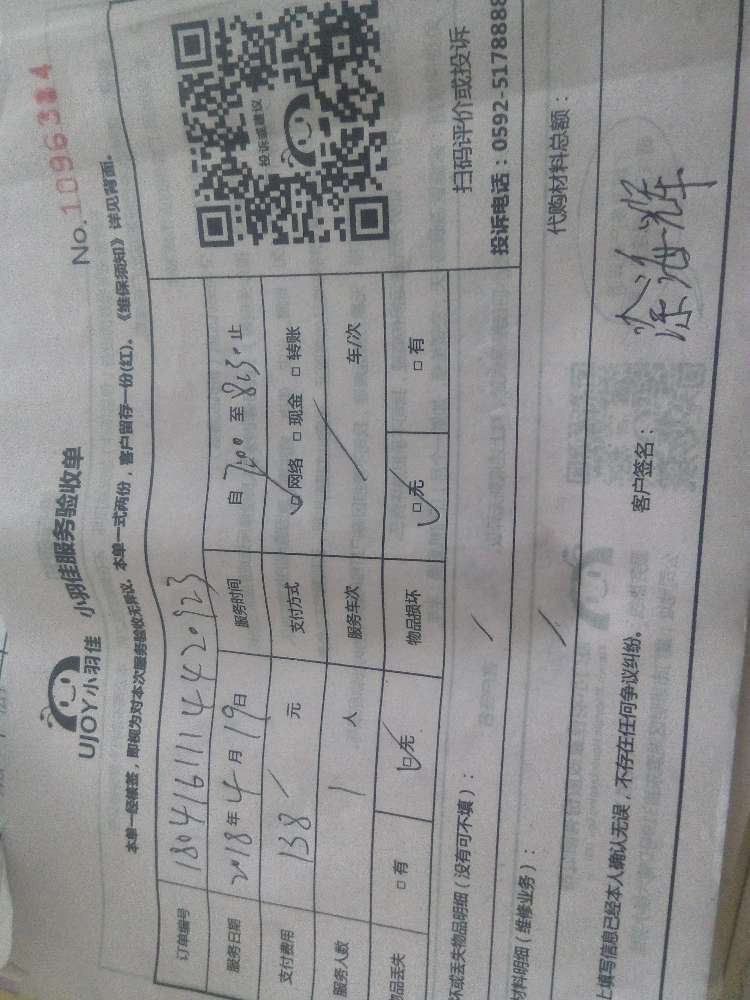 UJOY小羽佳 小羽佳服务验收单
No. 1096384
本单一经填签，即视为对本次服务验收无异议。本单一式两份，客户留存一份(红)。《维保须知》详见背面。
订单编号 18041611114420923
服务日期 2018年4月19日 服务时间 自 7:00 至 8:30 止
支付费用 138 元 支付方式 ☑网络 □现金 □转账
服务人数 1 人 服务车次 / 车/次
品丢失 □有 ☑无 物品损坏 ☑无 □有
投诉或建议
扫码评价或投诉
投诉电话：0592-5178888
坏或丢失物品明细（没有可不填）： /
材料明细（维修业务）： / 代购材料总额：
上填写信息已经本人确认无误，不存在任何争议纠纷。 客户签名： 徐海辉